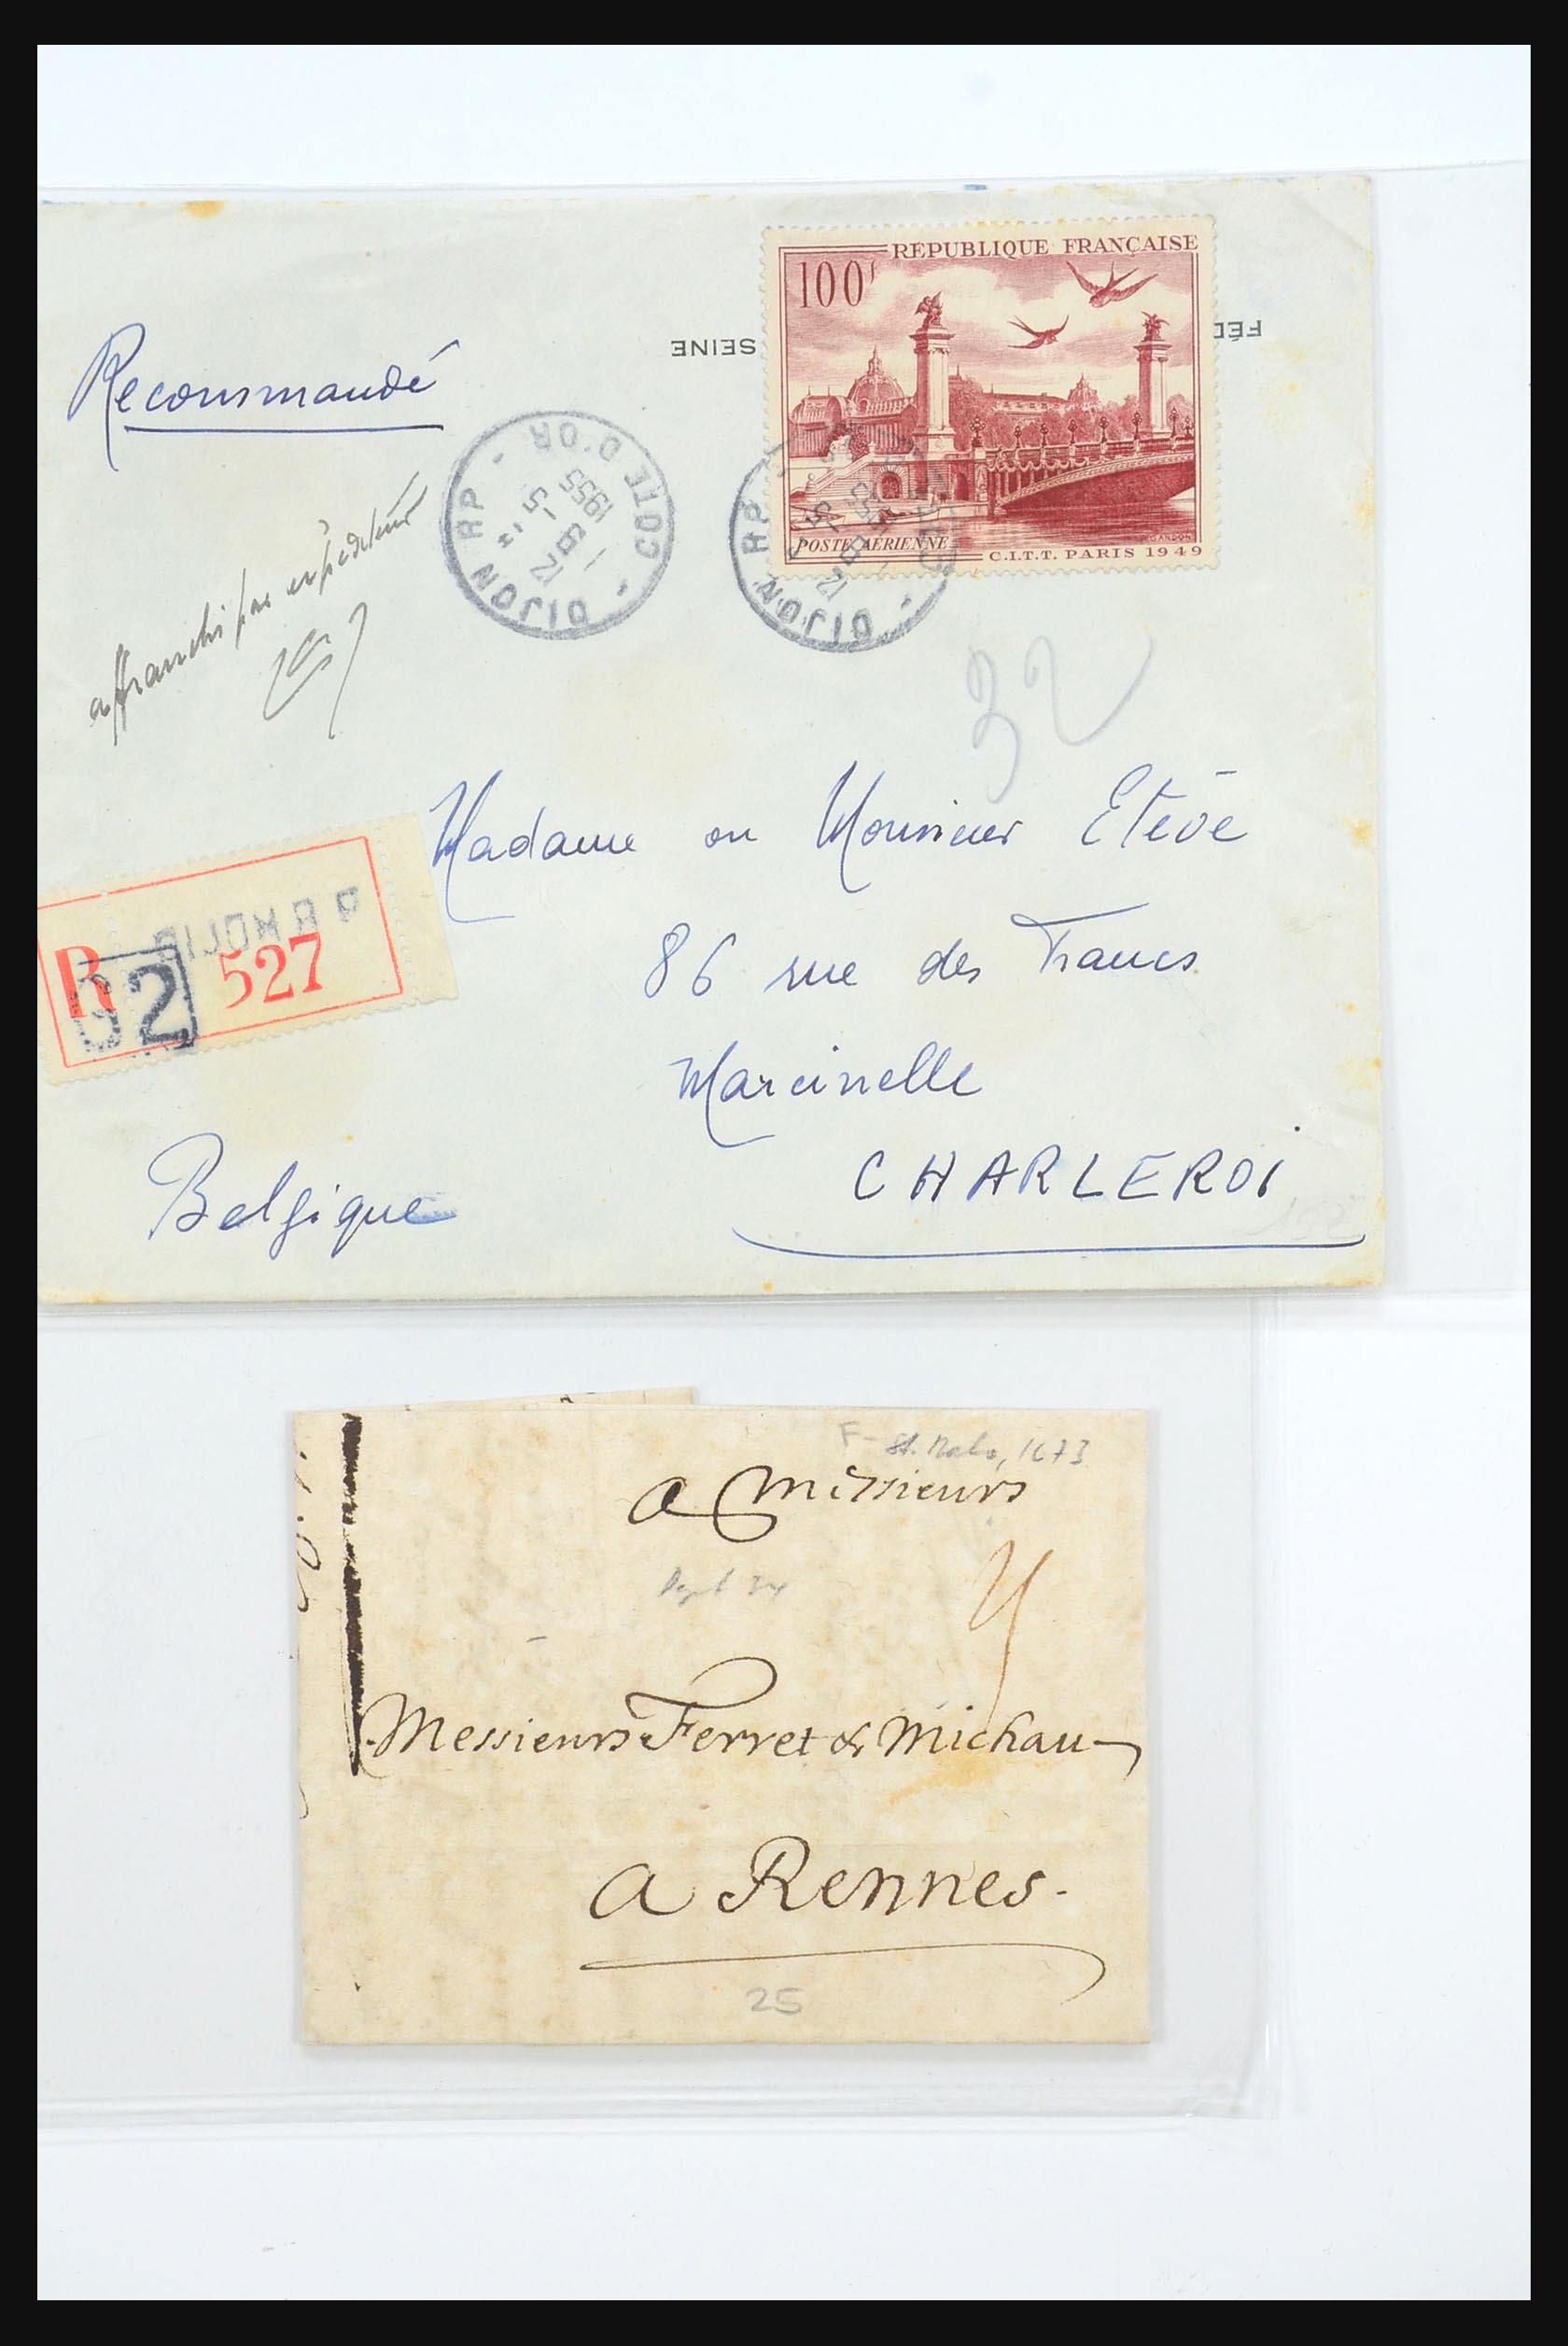 RÉPUBLIQUE FRANÇAISE
100F
SEINE
FÉD
Recommandé
POSTE AÉRIENNE
GANDON
C.I.T.T. PARIS 1949
DIJON RP - COTE D'OR -
12
-9 -5
1955
DIJON RP
affranchi par expéditeur
32
Madame ou Monsieur Etève
DIJON R P
R 527
02
86 rue des Francs
Marcinelle
CHARLEROI
Belgique
F - St. Malo, 1673
a Messieurs
Messieurs Ferret & Michau
a Rennes.
25